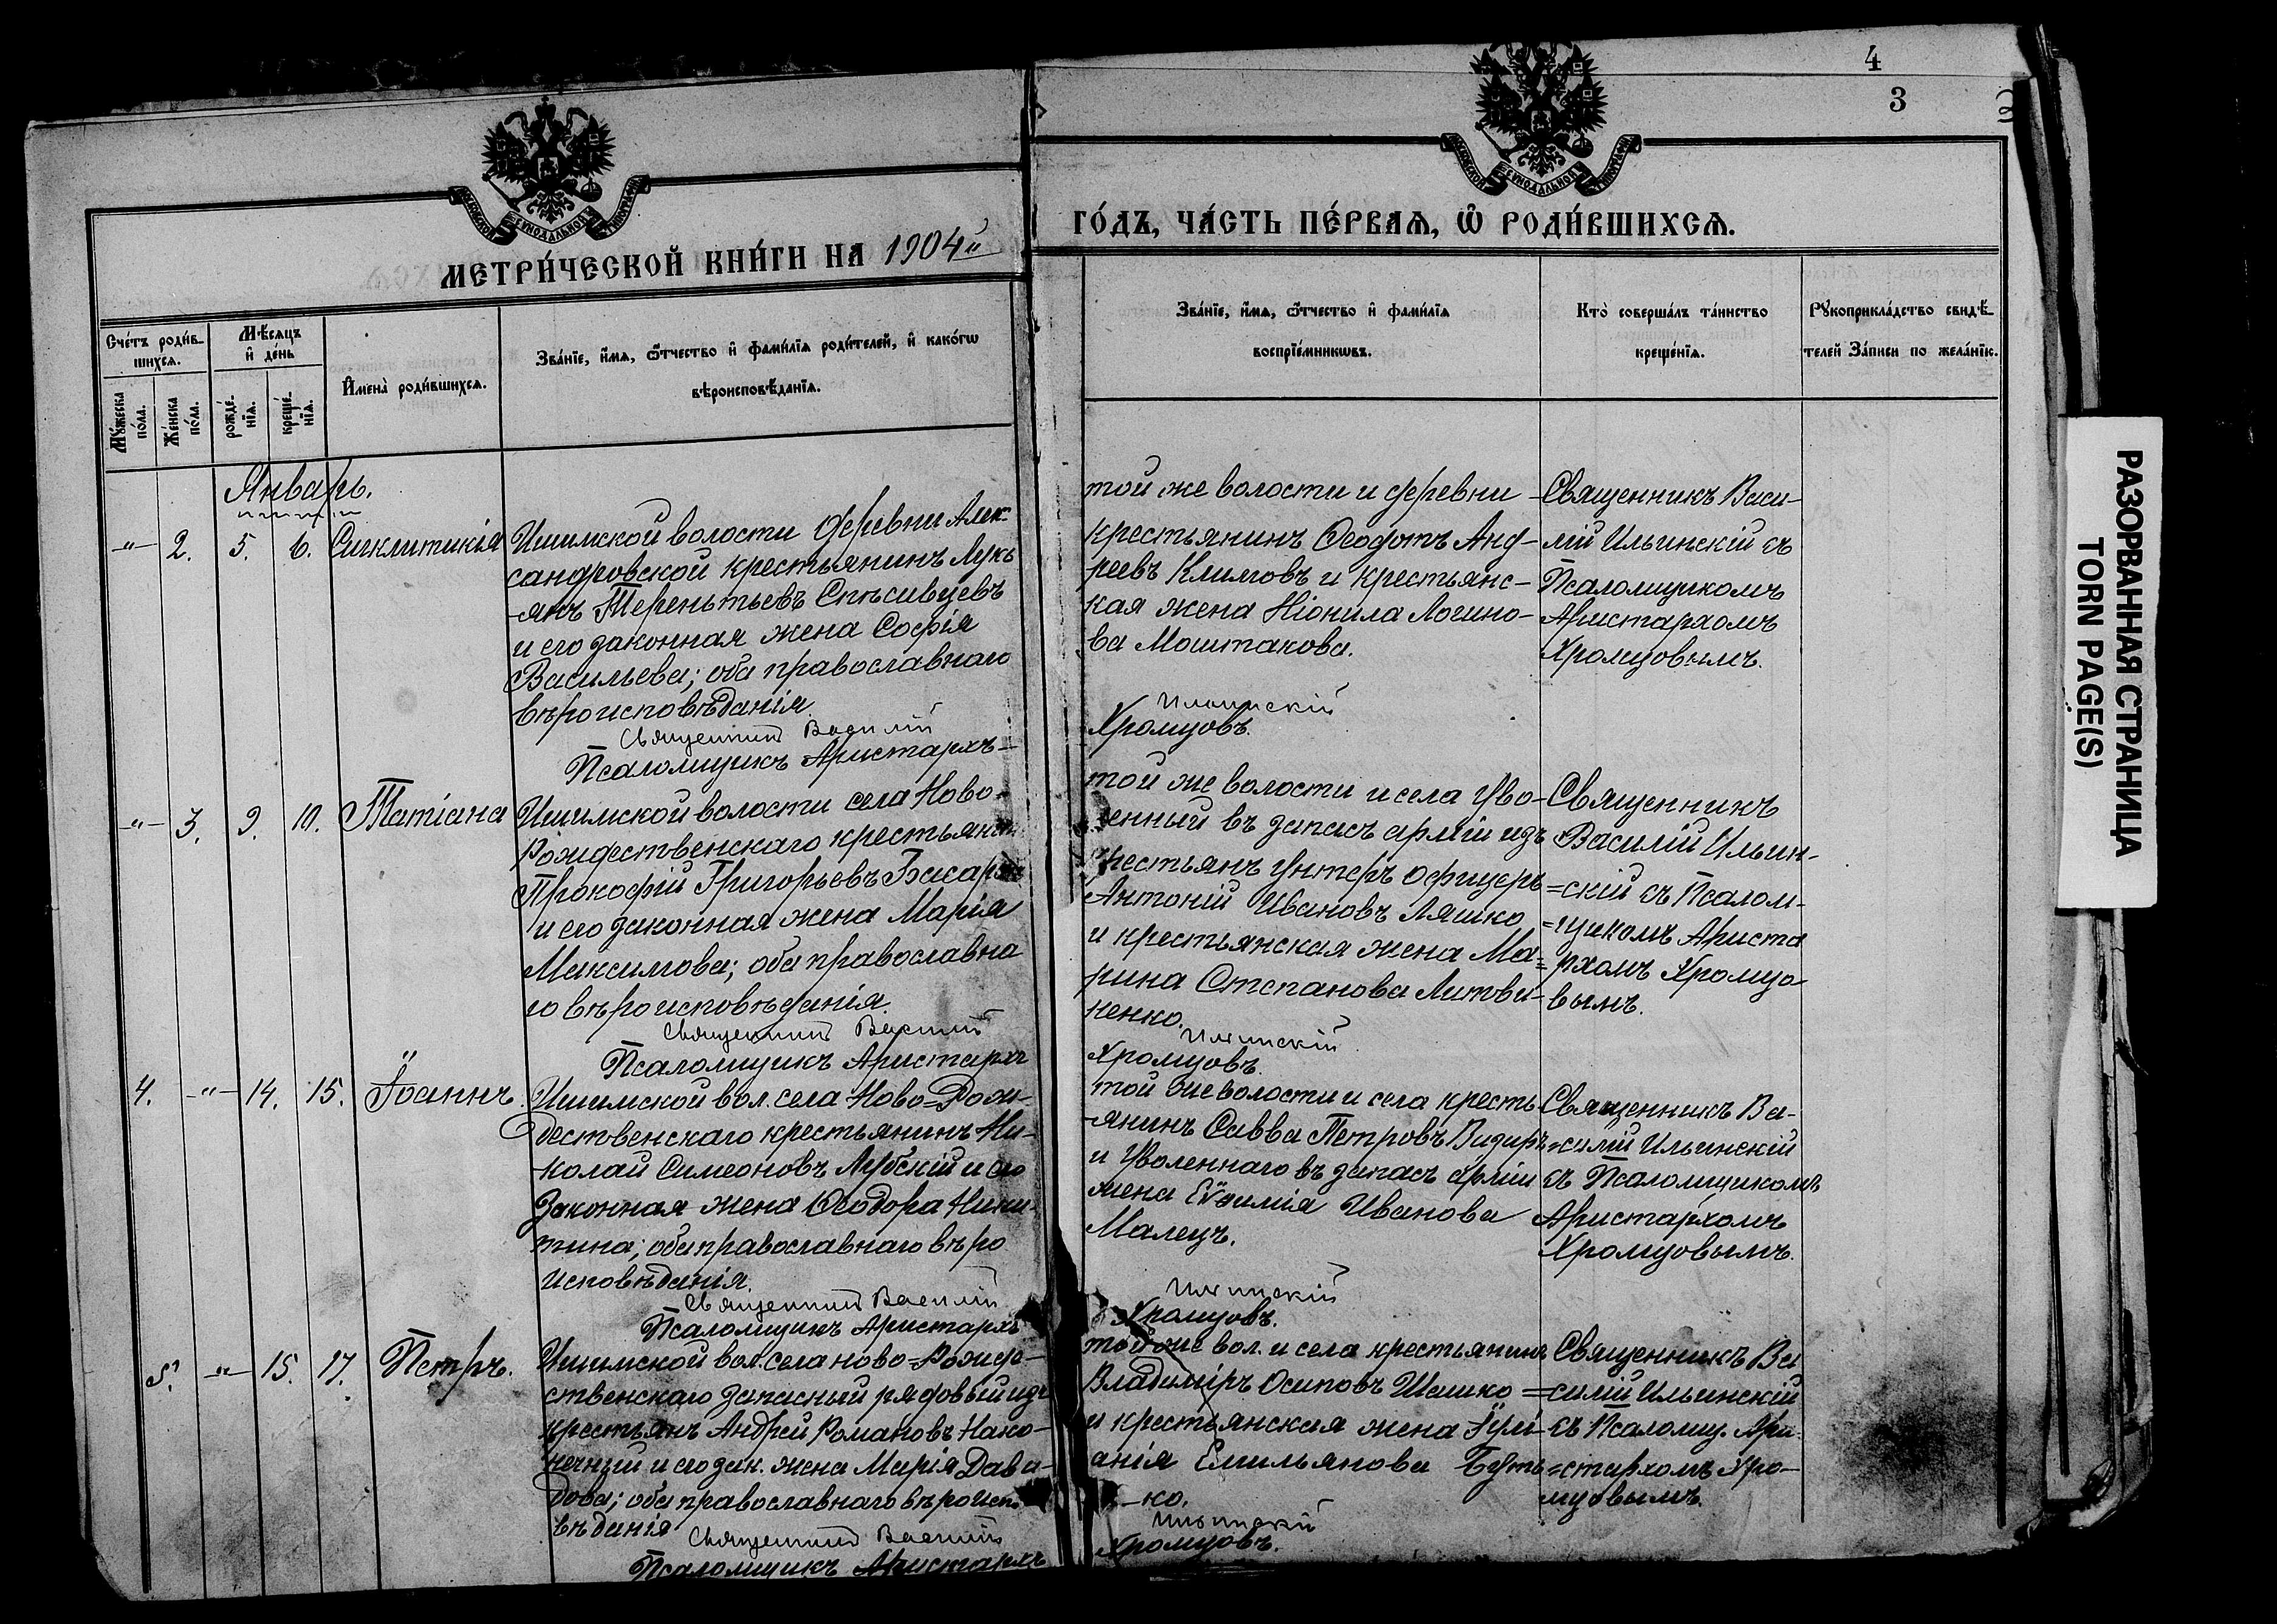 4
3
МЕТРИ́ЧЕСКОЙ КНИ́ГИ НА 1904й
ГО́ДЪ, ЧА́СТЬ ПЕ́РВАѦ, Ѿ РОДИ́ВШИХСѦ.
Сче́тъ роди́в-
шихсѧ.
Мѣ́сѧцъ
и҆ де́нь
Мꙋ́жеска
по́ла.
Же́нска
по́ла.
рожде́-
нїѧ.
креще́-
нїѧ.
И҆мена̀ роди́вшихсѧ.
Зва́нїе, и҆́мѧ, ѻ҆́тчество и҆ фами́лїѧ роди́телей, и҆ како́гѡ
вѣроисповѣ́данїѧ.
Зва́нїе, и҆́мѧ, ѻ҆́тчество и҆ фами́лїѧ
воспрїе́мникѡвъ.
Кто̀ соверша́лъ та́инство
креще́нїѧ.
Рꙋкоприкла́дство свидѣ́-
телей За́писи по жела́нїю.
Январь.
-"- 2. 5. 6. Сигклитикія
Ишимской волости деревни Алек-
сандровской крестьянинъ Лукь
-янъ Терентьевъ Спѣсивцевъ
и его законная жена Софія
Васильева; оба православнаго
вѣроисповѣданія.
Священникъ Василій
Псаломщикъ Аристархъ-
той же волости и деревни
крестьянинъ Ѳеодотъ Анд-
реевъ Климовъ и крестьянс-
кая жена Ніонила Логино-
ва Моштакова.
Ильинскій
Хромцовъ.
Священникъ Васи-
лій Ильинскій съ
Псаломщикомъ
Аристархомъ
Хромцовымъ.
-"- 3. 9. 10. Татіана
Ишимской волости села Ново-
Рождественскаго крестьянинъ
Прокофій Григорьевъ
и его законная жена Марія
Максимова; оба православна
го вѣроисповѣданія.
Священникъ Василій
Псаломщикъ Аристархъ
той же волости и села Уво-
ленный въ запасъ арміи изъ
крестьянъ Унтеръ офицеръ
Антоній Ивановъ Ляшко
и крестьянская жена Ма=
рина Степанова Литви-
ненко.
Ильинскій
Хромцовъ.
Священникъ
Василій Ильин-
=скій съ Псалом-
=щикомъ Ариста
рхомъ Хромцо-
вымъ.
4. -"- 14. 15. Іоаннъ.
Ишимской вол. села Ново=Рож-
дественскаго крестьянинъ Ни-
колай Симеоновъ Лубскій и его
Законная жена Ѳеодора Ники-
тина; оба православнаго вѣро
исповѣданія.
Священникъ Василій
Псаломщикъ Аристархъ
той же волости и села кресть
-янинъ Савва Петровъ
и Уволеннаго въ запасъ арміи
жена Евѳимія Иванова
Малецъ.
Ильинскій
Хромцовъ.
Священникъ Ва-
=силій Ильинскій
съ Псаломщикомъ
Аристархомъ
Хромцовымъ.
5. -"- 15. 17. Петръ.
Ишимской вол. села ново=Рожде-
ственскаго запасный рядовый изъ
крестьянъ Андрей Романовъ Нако-
нечный и его зак. жена Марія Дави-
дова; оба православнаго вѣроиспо
вѣданія
Священникъ Василій
Псаломщикъ Аристархъ
той же вол. и села крестьянинъ
Владиміръ Осиповъ Шашко
и крестьянская жена Іулі-
анія Емильянова Буть
-ко.
Ильинскій
Хромцовъ.
Священникъ Ва
=силій Ильинскій
съ Псаломщ. Ари-
=стархомъ Хро-
мцовымъ.
РАЗОРВАННАЯ СТРАНИЦА
TORN PAGE(S)